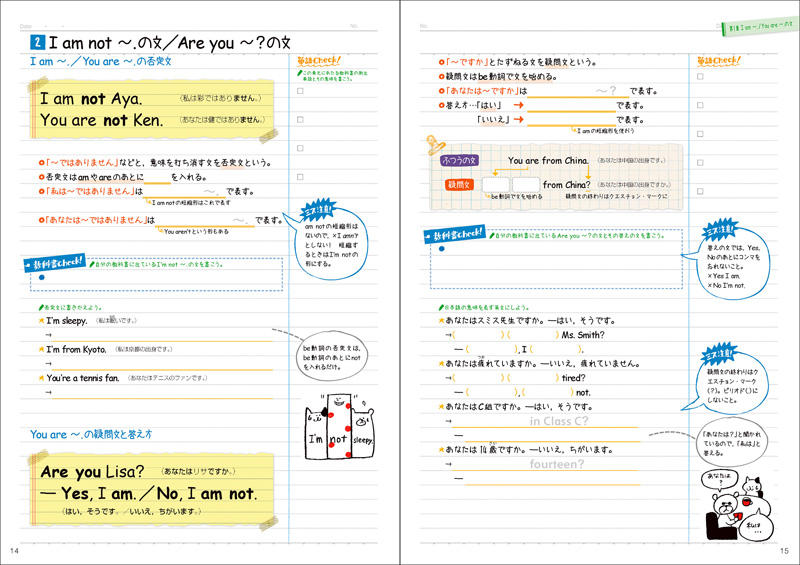 Date
No.
2 I am not ～.の文／Are you ～?の文
I am ～.／You are ～.の否定文
英語Check!
I am not Aya. （私は彩ではありません。）
You are not Ken. （あなたは健ではありません。）
「～ではありません」などと，意味を打ち消す文を否定文という。
否定文はamやareのあとに を入れる。
「私は～ではありません」は ～．で表す。
I am notの短縮形はこれで表す
「あなたは～ではありません」は ～．で表す。
You aren'tという形もある
ミス注意!
am notの短縮形は
ないので，×I amn't
としない! 短縮す
るときはI'm notの
形にする。
教科書Check!
自分の教科書に出ているI'm not ～.の文を書こう。
否定文に書きかえよう。
I'm sleepy. （私は眠いです。）
→
I'm from Kyoto. （私は京都の出身です。）
→
You're a tennis fan. （あなたはテニスのファンです。）
→
be動詞の否定文は，
be動詞のあとにnot
を入れるだけ。
I'm not sleepy.
You are ～.の疑問文と答え方
Are you Lisa? （あなたはリサですか。）
— Yes, I am.／No, I am not.
（はい，そうです。／いいえ，ちがいます。）
14
No.
Date
「～ですか」とたずねる文を疑問文という。
疑問文はbe動詞で文を始める。
「あなたは～ですか」は ～? で表す。
答え方…「はい」 → で表す。
「いいえ」 → で表す。
I amの短縮形を使おう
英語Check!
ふつうの文 You are from China. （あなたは中国の出身です。）
疑問文 from China? （あなたは中国の出身ですか。）
be動詞で文を始める 疑問文の終わりはクエスチョン・マークに
教科書Check!
自分の教科書に出ているAre you ～?の文とその答えの文を書こう。
ミス注意!
答えの文では，Yes,
Noのあとにコンマを
忘れないこと。
×Yes I am.
×No I'm not.
日本語の意味を表す英文にしよう。
あなたはスミス先生ですか。—はい，そうです。
→( )( ) Ms. Smith?
— ( ), I ( ).
あなたは疲れていますか。—いいえ，疲れていません。
→( )( ) tired?
— ( ), ( ) not.
あなたはC組ですか。—はい，そうです。
→ in Class C?
—
あなたは14歳ですか。—いいえ，ちがいます。
→ fourteen?
—
ミス注意!
疑問文の終わりはク
エスチョン・マーク
(?)。ピリオド(.)に
しないこと。
「あなたは?」と聞かれ
ているので，「私は」と
答える。
あなたは
?
私は
…
15